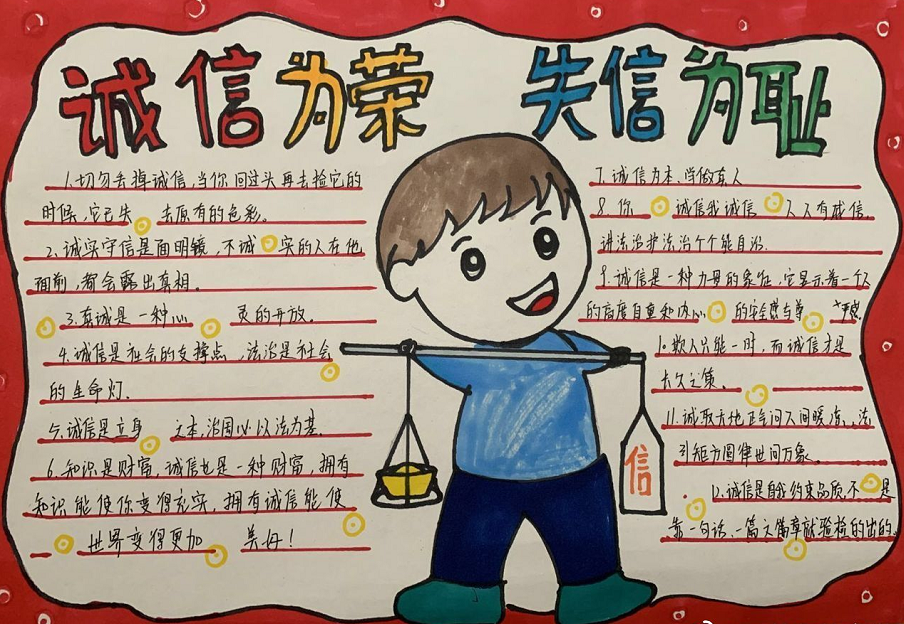 诚信为荣 失信为耻
1.切勿丢掉诚信,当你回过头再去捡它的
时候,它已失去原有的色彩。
2.诚实守信是面明镜,不诚实的人在他
面前,都会露出真相。
3.真诚是一种心灵的开放。
4.诚信是社会的支撑点,法治是社会
的生命灯。
5.诚信是立身之本,治国必以法为基.
6.知识是财富,诚信也是一种财富,拥有
知识能使你变得充实,拥有诚信能使
世界变得更加美好!
7.诚信为本,学做真人
8.你诚信我诚信人人有诚信.
讲法治护法治个个能自治.
9.诚信是一种力量的象征,它显示着一个人
的高度自重和内心的安全感与尊严感.
10.欺人只能一时,而诚信才是
长久之策。
11.诚取天地正气问人间暖冻,法
引矩方圆律世间万象。
12.诚信是自我约束品质,不是
靠一句话,一篇文篇章就验检的出的.
信